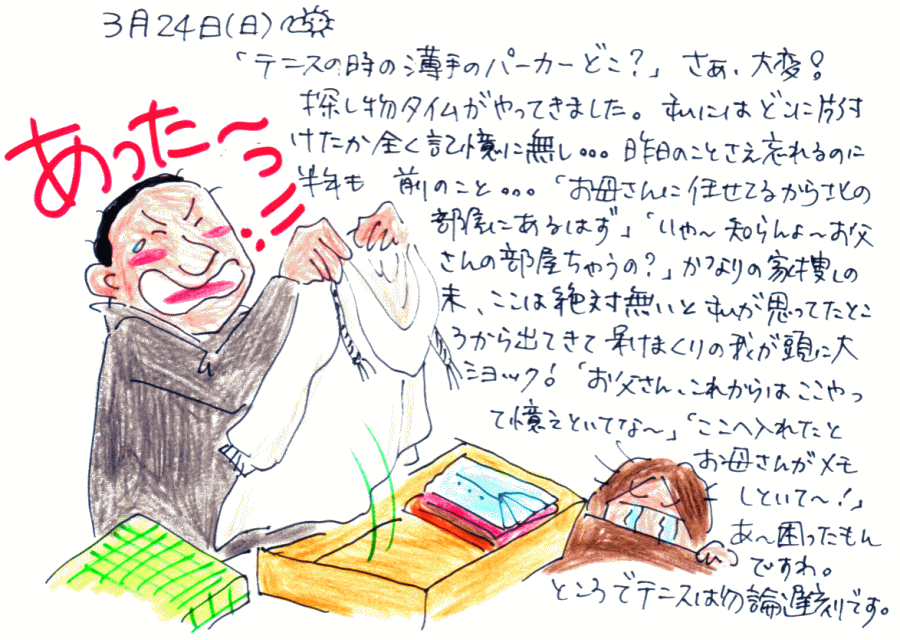 3月24日(日)
「テニスの時の薄手のパーカーどこ?」 さぁ、大変!
探し物タイムがやってきました。私にはどこに片付
けたか全く記憶に無し... 昨日のことさえ忘れるのに
半年も 前のこと... 「お母さんに任せてるから北の
部屋にあるはず」「いや〜知らんよ〜お父
さんの部屋ちゃうの?」かなりの家捜しの
末、ここは絶対無いと私が思ってたとこ
ろから出てきて 呆けまくりの我が頭に大
ショック!「お父さん、これからはここやっ
て憶えといてな〜」「ここへ入れたと
お母さんがメモ
しといて〜!」
あ〜困ったもん
ですわ。
ところでテニスは勿論遅刻です。
あった〜っ!!